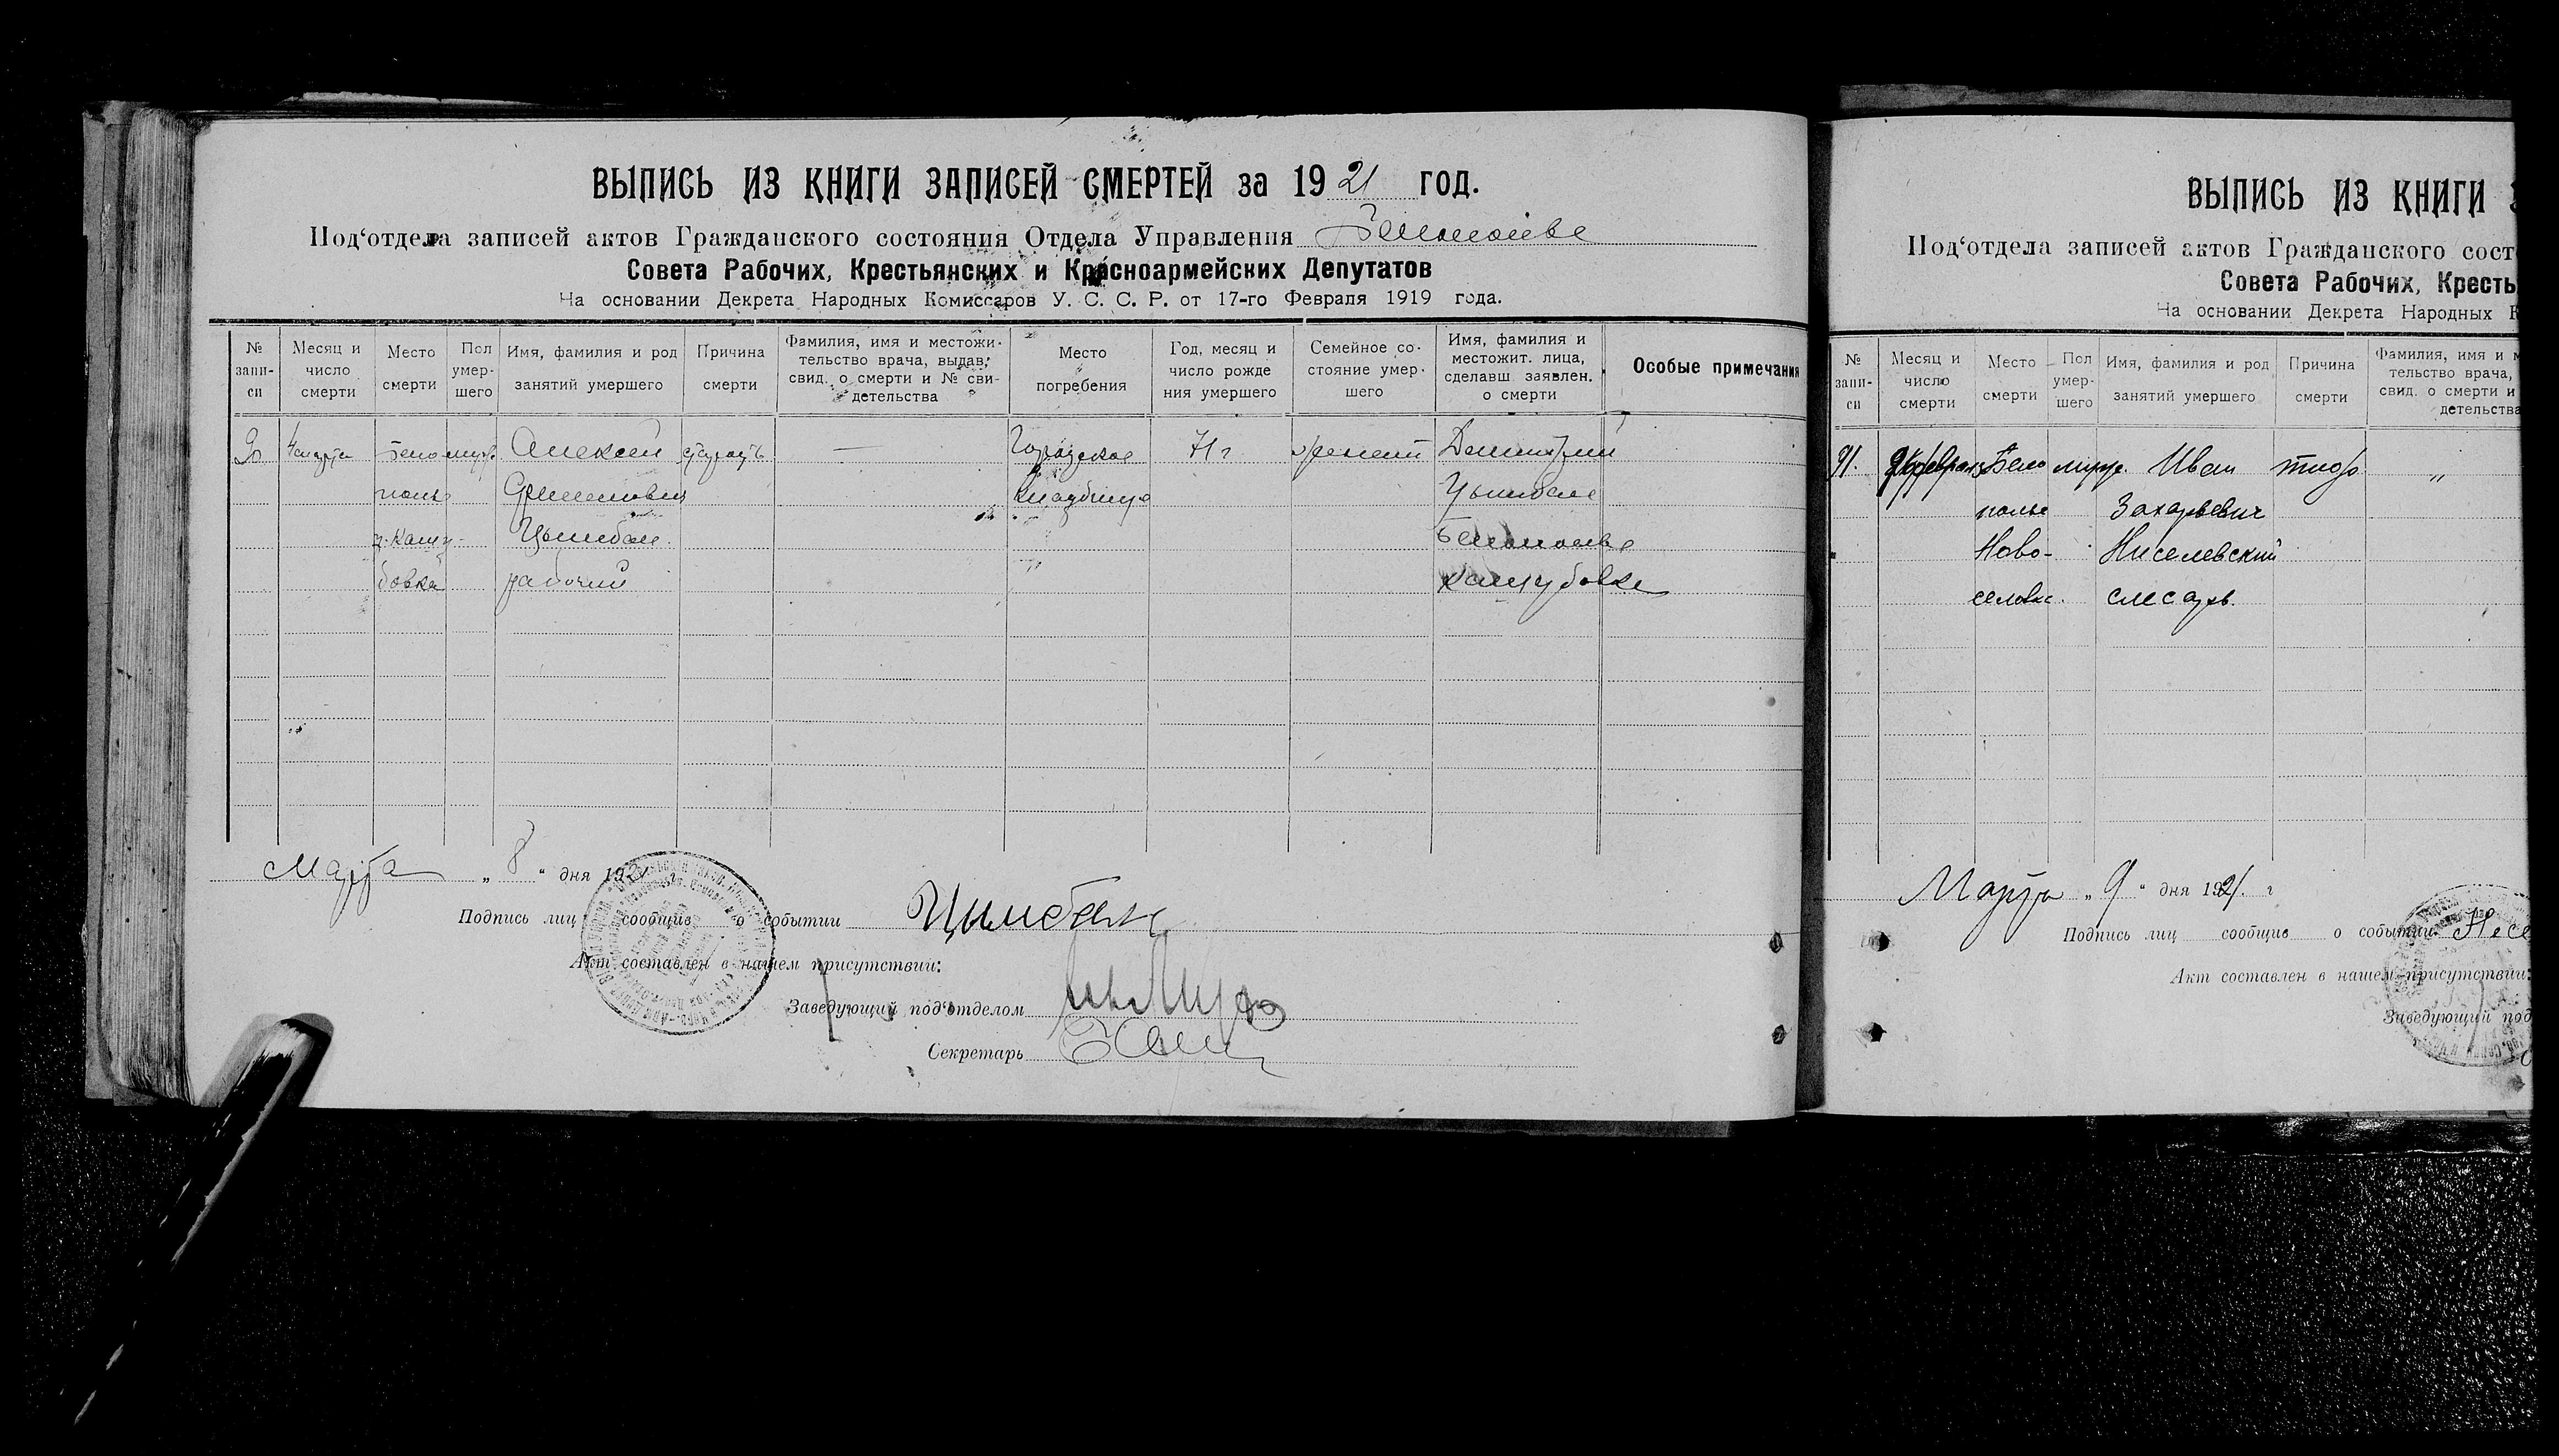 ВЫПИСЬ ИЗ КНИГИ ЗАПИСЕЙ СМЕРТЕЙ за 1921 год.
Под‘отдела записей актов Гражданского состояния Отдела Управления
Совета Рабочих, Крестьянских и Красноармейских Депутатов
На основании Декрета Народных Комиссаров У. С. С. Р. от 17-го Февраля 1919 года.
№ запи-си
Месяц и число смерти
Место смерти
Пол умер-шего
Имя, фамилия и род занятий умершего
Причина смерти
Фамилия, имя и местожи-тельство врача, выдав. свид. о смерти и № сви-детельства
Место погребения
Год, месяц и число рожде ния умершего
Семейное со-стояние умер-шего
Имя, фамилия и местожит. лица, сделавш. заявлен. о смерти
Особые примечания
90 4 марта Бело муж. Алексей старость — Городское 71 г женат Димитрий
поль кладбище Цымбал
г. Кашу- Цымбал. Белополье
бовка рабочий Кашубовка
Марта „ 8 “ дня 1921 г.
Подпись лиц сообщив о событии Цымбал
Акт составлен в нашем присутствии:
Заведующий под‘отделом
Секретарь
ВЫПИСЬ ИЗ КНИГИ
Под‘отдела записей актов Гражданского сост
Совета Рабочих, Кресть
На основании Декрета Народных К
№ запи-си
Месяц и число смерти
Место смерти
Пол умер-шего
Имя, фамилия и род занятий умершего
Причина смерти
Фамилия, имя и м тельство врача, свид. о смерти и детельства
91. февраля Бело муж. Иван тиф "
полье Захарьевич
Ново- Киселевский
селовк. слесарь.
Марта „ 9 “ дня 1921. г
Подпись лиц сообщив о событии
Акт составлен в нашем присутствии:
Заведующий под